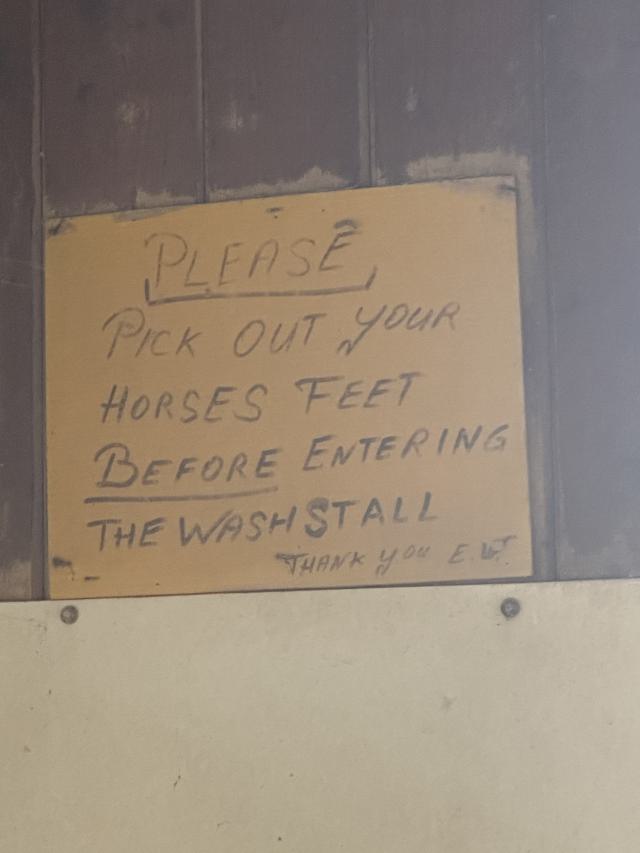 PLEASE
PICK OUT YOUR
HORSES FEET
BEFORE ENTERING
THE WASH STALL
THANK YOU E.W.